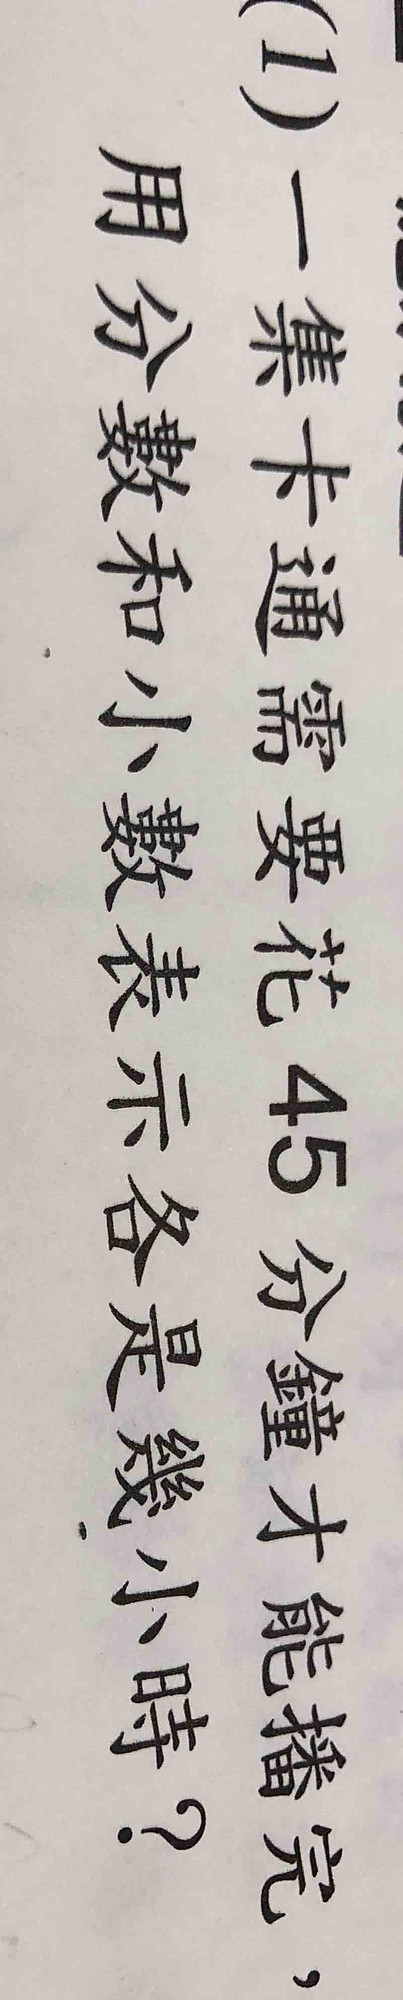 (1)一集卡通需要花45分鐘才能播完，
用分數和小數表示各是幾小時？